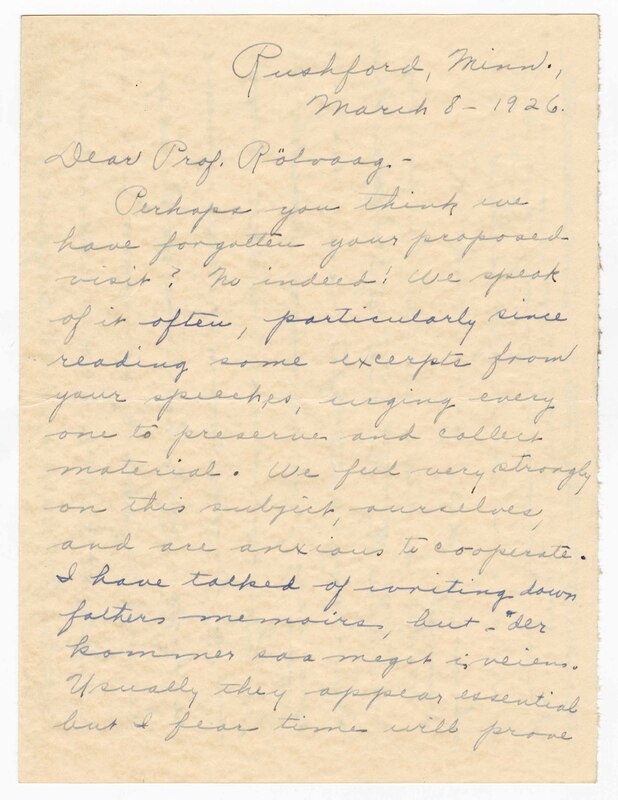 Rushford, Minn.,
March 8 - 1926.
Dear Prof. Rölvaag.-
Perhaps you think we
have forgotten your proposed
visit? No indeed! We speak
of it often, particularly since
reading some excerpts from
your speeches, urging every
one to preserve and collect
material. We feel very strongly
on this subject, ourselves,
and are anxious to cooperate.
I have talked of writing down
fathers memoirs, but - "der
kommer saa meget i veien.
Usually they appear essential
but I fear time will prove